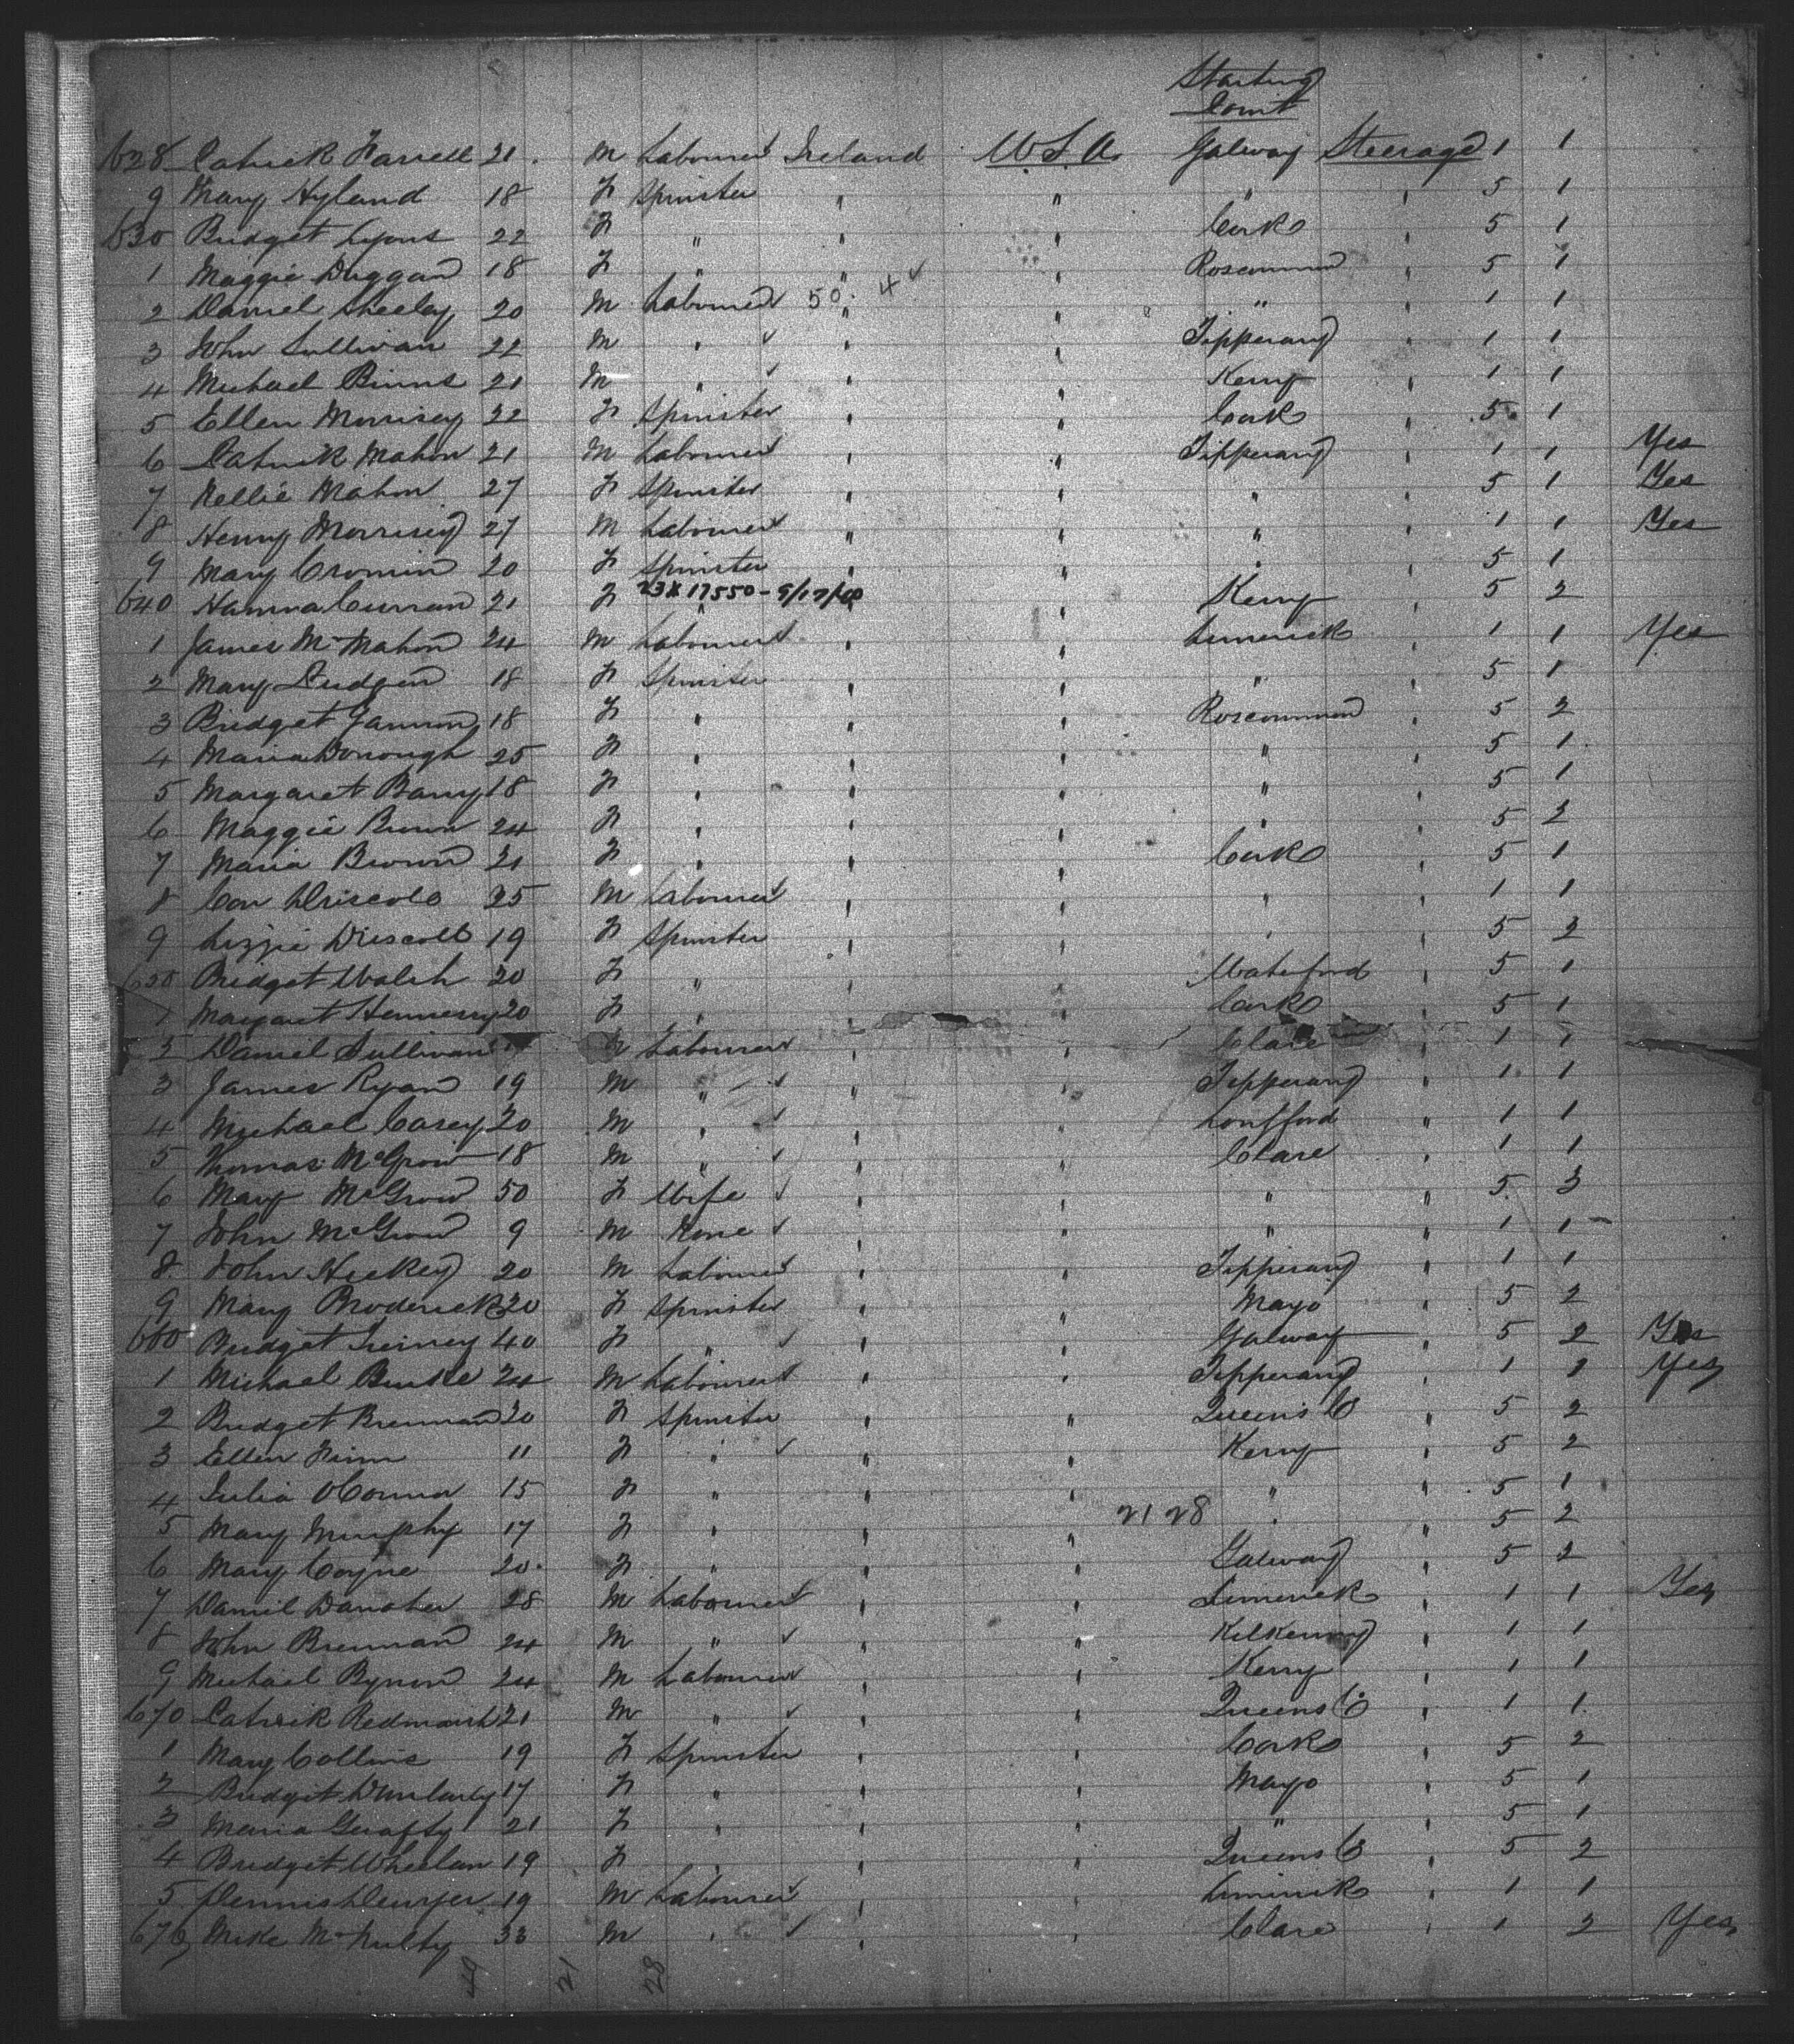 Starting
Point
628 Patrick Farrell 21 M Labourer Ireland U.S.A. Galway Steerage 1 1
9 Mary Hyland 18 F Spinster " " " " 5 1
630 Bridget Lyons 22 F " " " Cork " 5 1
1 Maggie Duggan 18 F " " " Roscommon " 5 1
2 Daniel Sheeley 20 M Labourer 50 " 4 " " " 1 1
3 John Sullivan 22 M " " " Tipperary " 1 1
4 Michael Binns 21 M " " " Kerry " 1 1
5 Ellen Morrisey 22 F Spinster " " Cork " 5 1
6 Patrick Mahon 21 M Labourer " " Tipperary " 1 1 Yes
7 Nellie Mahon 27 F Spinster " " " " 5 1 Yes
8 Henry Morrisey 27 M Labourer " " " " 1 1 Yes
9 Mary Cronin 20 F Spinster " " " " 5 1
640 Hanna Curran 21 F 23X17550-9/17/40 " " " Kerry " 5 2
1 James McMahon 24 M Labourer " " Limerick " 1 1 Yes
2 Mary 18 F Spinster " " " " 5 1
3 Bridget Gannon 18 F " " " Roscommon " 5 2
4 Maria Donough 25 F " " " " " 5 1
5 Margaret Barry 18 F " " " " " 5 1
6 Maggie 24 F " " " " " 5 2
7 Maria Brown 21 F " " " Cork " 5 1
8 Con Driscoll 25 M Labourer " " " " 1 1
9 Lizzie Driscoll 19 F Spinster " " " " 5 2
650 Bridget Walsh 20 F " " " Waterford " 5 1
1 Margaret Hennessy 20 F " " " Cork " 5 1
2 Daniel Sullivan Labourer " " Clare " 1 1
3 James Ryan 19 M " " " Tipperary " 1 1
4 Michael Casey 20 M " " " Longford " 1 1
5 Thomas McGrow 18 M " " " Clare " 1 1
6 Mary McGrow 50 F Wife " " " " 5 3
7 John McGrow 9 M None " " " " 1 1
8 John Hickey 20 M Labourer " " Tipperary " 1 1
9 Mary Broderick 20 F Spinster " " Mayo " 5 2
660 Bridget Tierney 40 F " " " Galway " 5 2 Yes
1 Michael Burke 24 M Labourer " " Tipperary " 1 1 Yes
2 Bridget Brennan 20 F Spinster " " Queens Co " 5 2
3 Ellen Finn 11 F " " " Kerry " 5 2
4 Julia OConnor 15 F " " " " " 5 1
5 Mary Murphy 17 F " " " 21 28 " " 5 2
6 Mary Coyne 20 F " " " Galway " 5 2
7 Daniel Danaher 28 M Labourer " " Limerick " 1 1 Yes
8 John Brennan 24 M " " " Kilkenny " 1 1
9 Michael 24 M Labourer " " Kerry " 1 1
670 Patrick 21 M " " " Queens Co " 1 1
1 Mary Collins 19 F Spinster " " Cork " 5 2
2 Bridget 17 F " " " Mayo " 5 1
3 Maria 21 F " " " " " 5 1
4 Bridget Whelan 19 F " " Queens Co " 5 2
5 Dennis 19 M Labourer " " Limerick " 1 1
676 Mike McNulty 33 M " " " Clare " 1 2 Yes
49 21 28